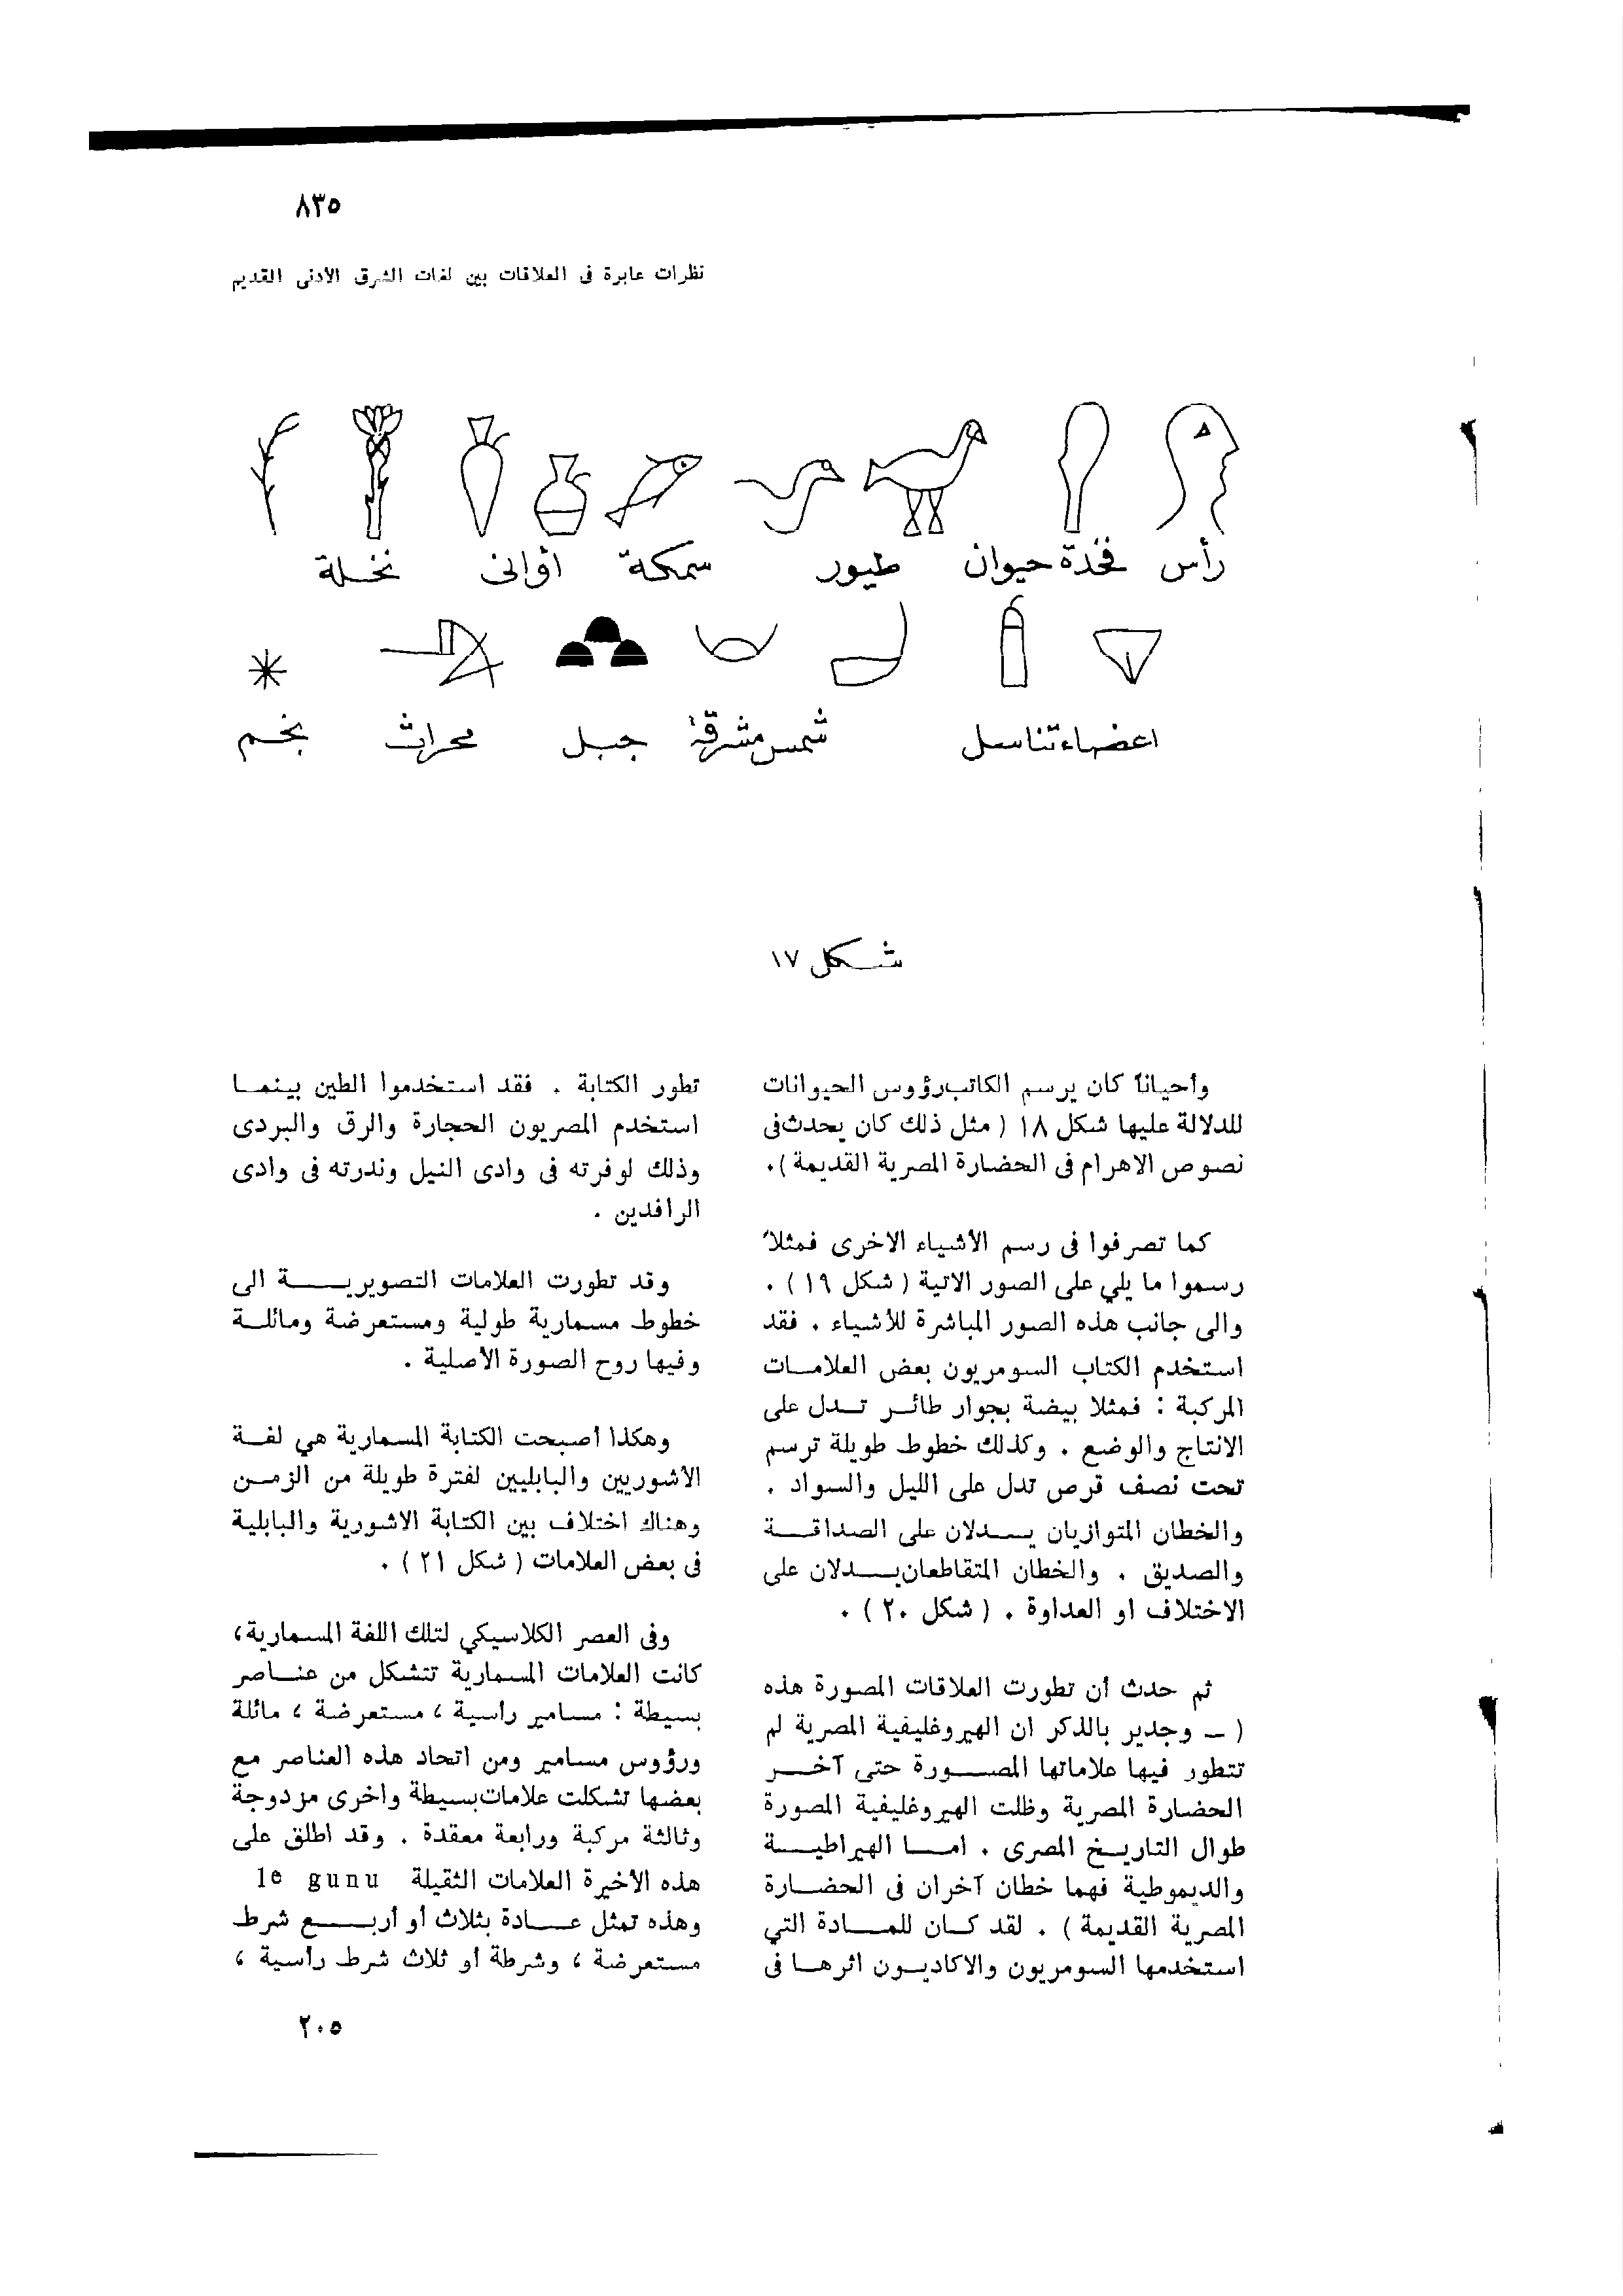 ٨٣٥
نظرات عابرة فى العلاقات بين لغات الشرق الأدنى القديم
رأس فخدة حيوان طيور سمكة أوانى نخلة
اعضاء تناسل شمس مشرقة جبل محراث نجم
شكل ١٧
وأحياناً كان يرسم الكاتب رؤوس الحيوانات
للدلالة عليها شكل ١٨ ( مثل ذلك كان يحدث فى
نصوص الاهرام فى الحضارة المصرية القديمة ) .
كما تصرفوا فى رسم الأشياء الاخرى فمثلاً
رسموا ما يلي على الصور الاتية ( شكل ١٩ ) .
والى جانب هذه الصور المباشرة للأشياء . فقد
استخدم الكتاب السومريون بعض العلامات
المركبة : فمثلا بيضة بجوار طائر تدل على
الانتاج والوضع . وكذلك خطوط طويلة ترسم
تحت نصف قرص تدل على الليل والسواد .
والخطان المتوازيان يدلان على الصداقة
والصديق . والخطان المتقاطعان يدلان على
الاختلاف او العداوة . ( شكل ٢٠ ) .
ثم حدث أن تطورت العلاقات المصورة هذه
( — وجدير بالذكر ان الهيروغليفية المصرية لم
تتطور فيها علاماتها المصورة حتى آخر
الحضارة المصرية وظلت الهيروغليفية المصورة
طوال التاريخ المصرى . اما الهيراطية
والديموطية فهما خطان آخران فى الحضارة
المصرية القديمة ) . لقد كان للمادة التي
استخدمها السومريون والاكاديون اثرها فى
تطور الكتابة . فقد استخدموا الطين بينما
استخدم المصريون الحجارة والرق والبردى
وذلك لوفرته فى وادى النيل وندرته فى وادى
الرافدين .
وقد تطورت العلامات التصويرية الى
خطوط مسمارية طولية ومستعرضة ومائلة
وفيها روح الصورة الأصلية .
وهكذا أصبحت الكتابة المسمارية هي لغة
الاشوريين والبابليين لفترة طويلة من الزمن
وهناك اختلاف بين الكتابة الاشورية والبابلية
فى بعض العلامات ( شكل ٢١ ) .
وفى العصر الكلاسيكي لتلك اللغة المسمارية،
كانت العلامات المسمارية تتشكل من عناصر
بسيطة : مسامير رأسية ، مستعرضة ، مائلة
ورؤوس مسامير ومن اتحاد هذه العناصر مع
بعضها تشكلت علامات بسيطة واخرى مزدوجة
وثالثة مركبة ورابعة معقدة . وقد اطلق على
هذه الأخيرة العلامات الثقيلة le gunu
وهذه تمثل عادة بثلاث أو أربع شرط
مستعرضة ، وشرطة أو ثلاث شرط رأسية ،
٢٠٥